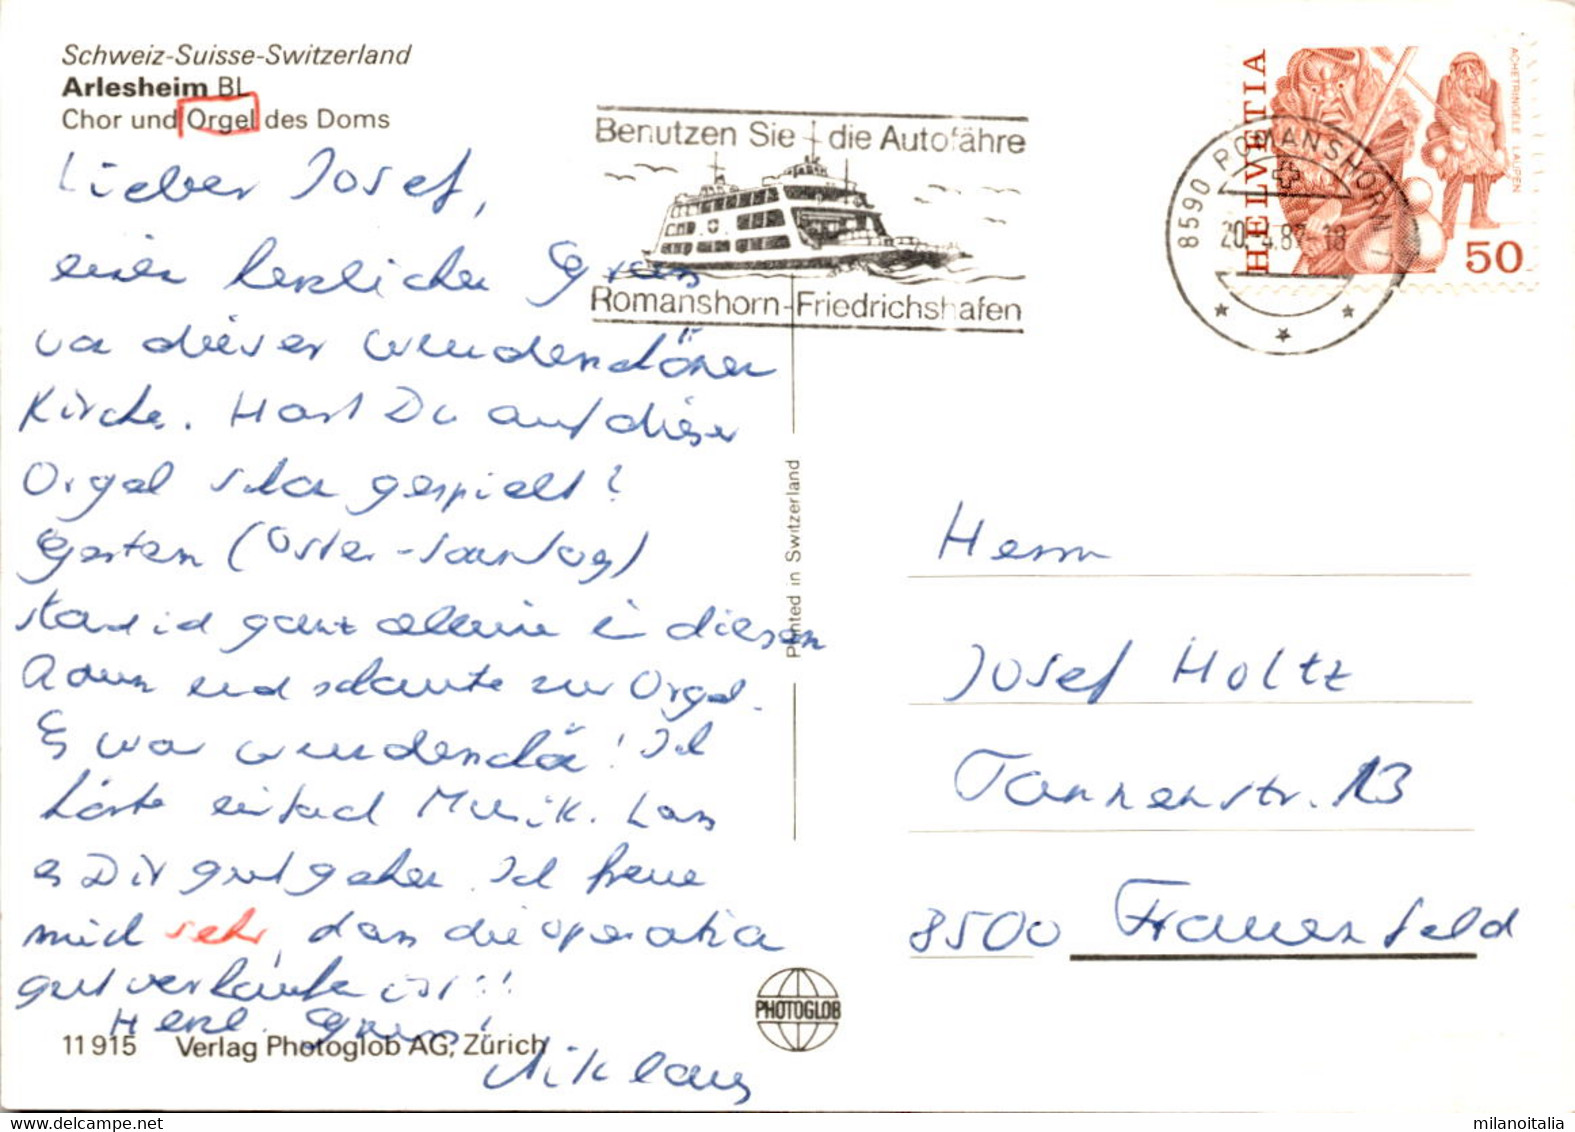 Schweiz-Suisse-Switzerland
Arlesheim BL
Chor und Orgel des Doms
Lieber Josef,
einen herzlichen Gruss
von dieser wunderschönen
Kirche. Hast Du auf dieser
Orgel schon gespielt?
Gestern (Oster-Sonntag)
stand ich ganz alleine in diesem
Raum und schaute zur Orgel.
Es war wunderschön! Ich
hörte einfach Musik. Lass
es Dir gut gehen. Ich freue
mich sehr, dass die Operation
gut verlaufen ist!!
Herzl. Gruss!
Niklaus
11 915 Verlag Photoglob AG, Zürich
Benutzen Sie die Autofähre
Romanshorn-Friedrichshafen
Printed in Switzerland
PHOTOGLOB
HELVETIA
ACHETRINGELE LAUPEN
50
8590 ROMANSHORN 1
20. 4.87-18
Herrn
Josef Holtz
Tannenstr. 13
8500 Frauenfeld
milanoitalia